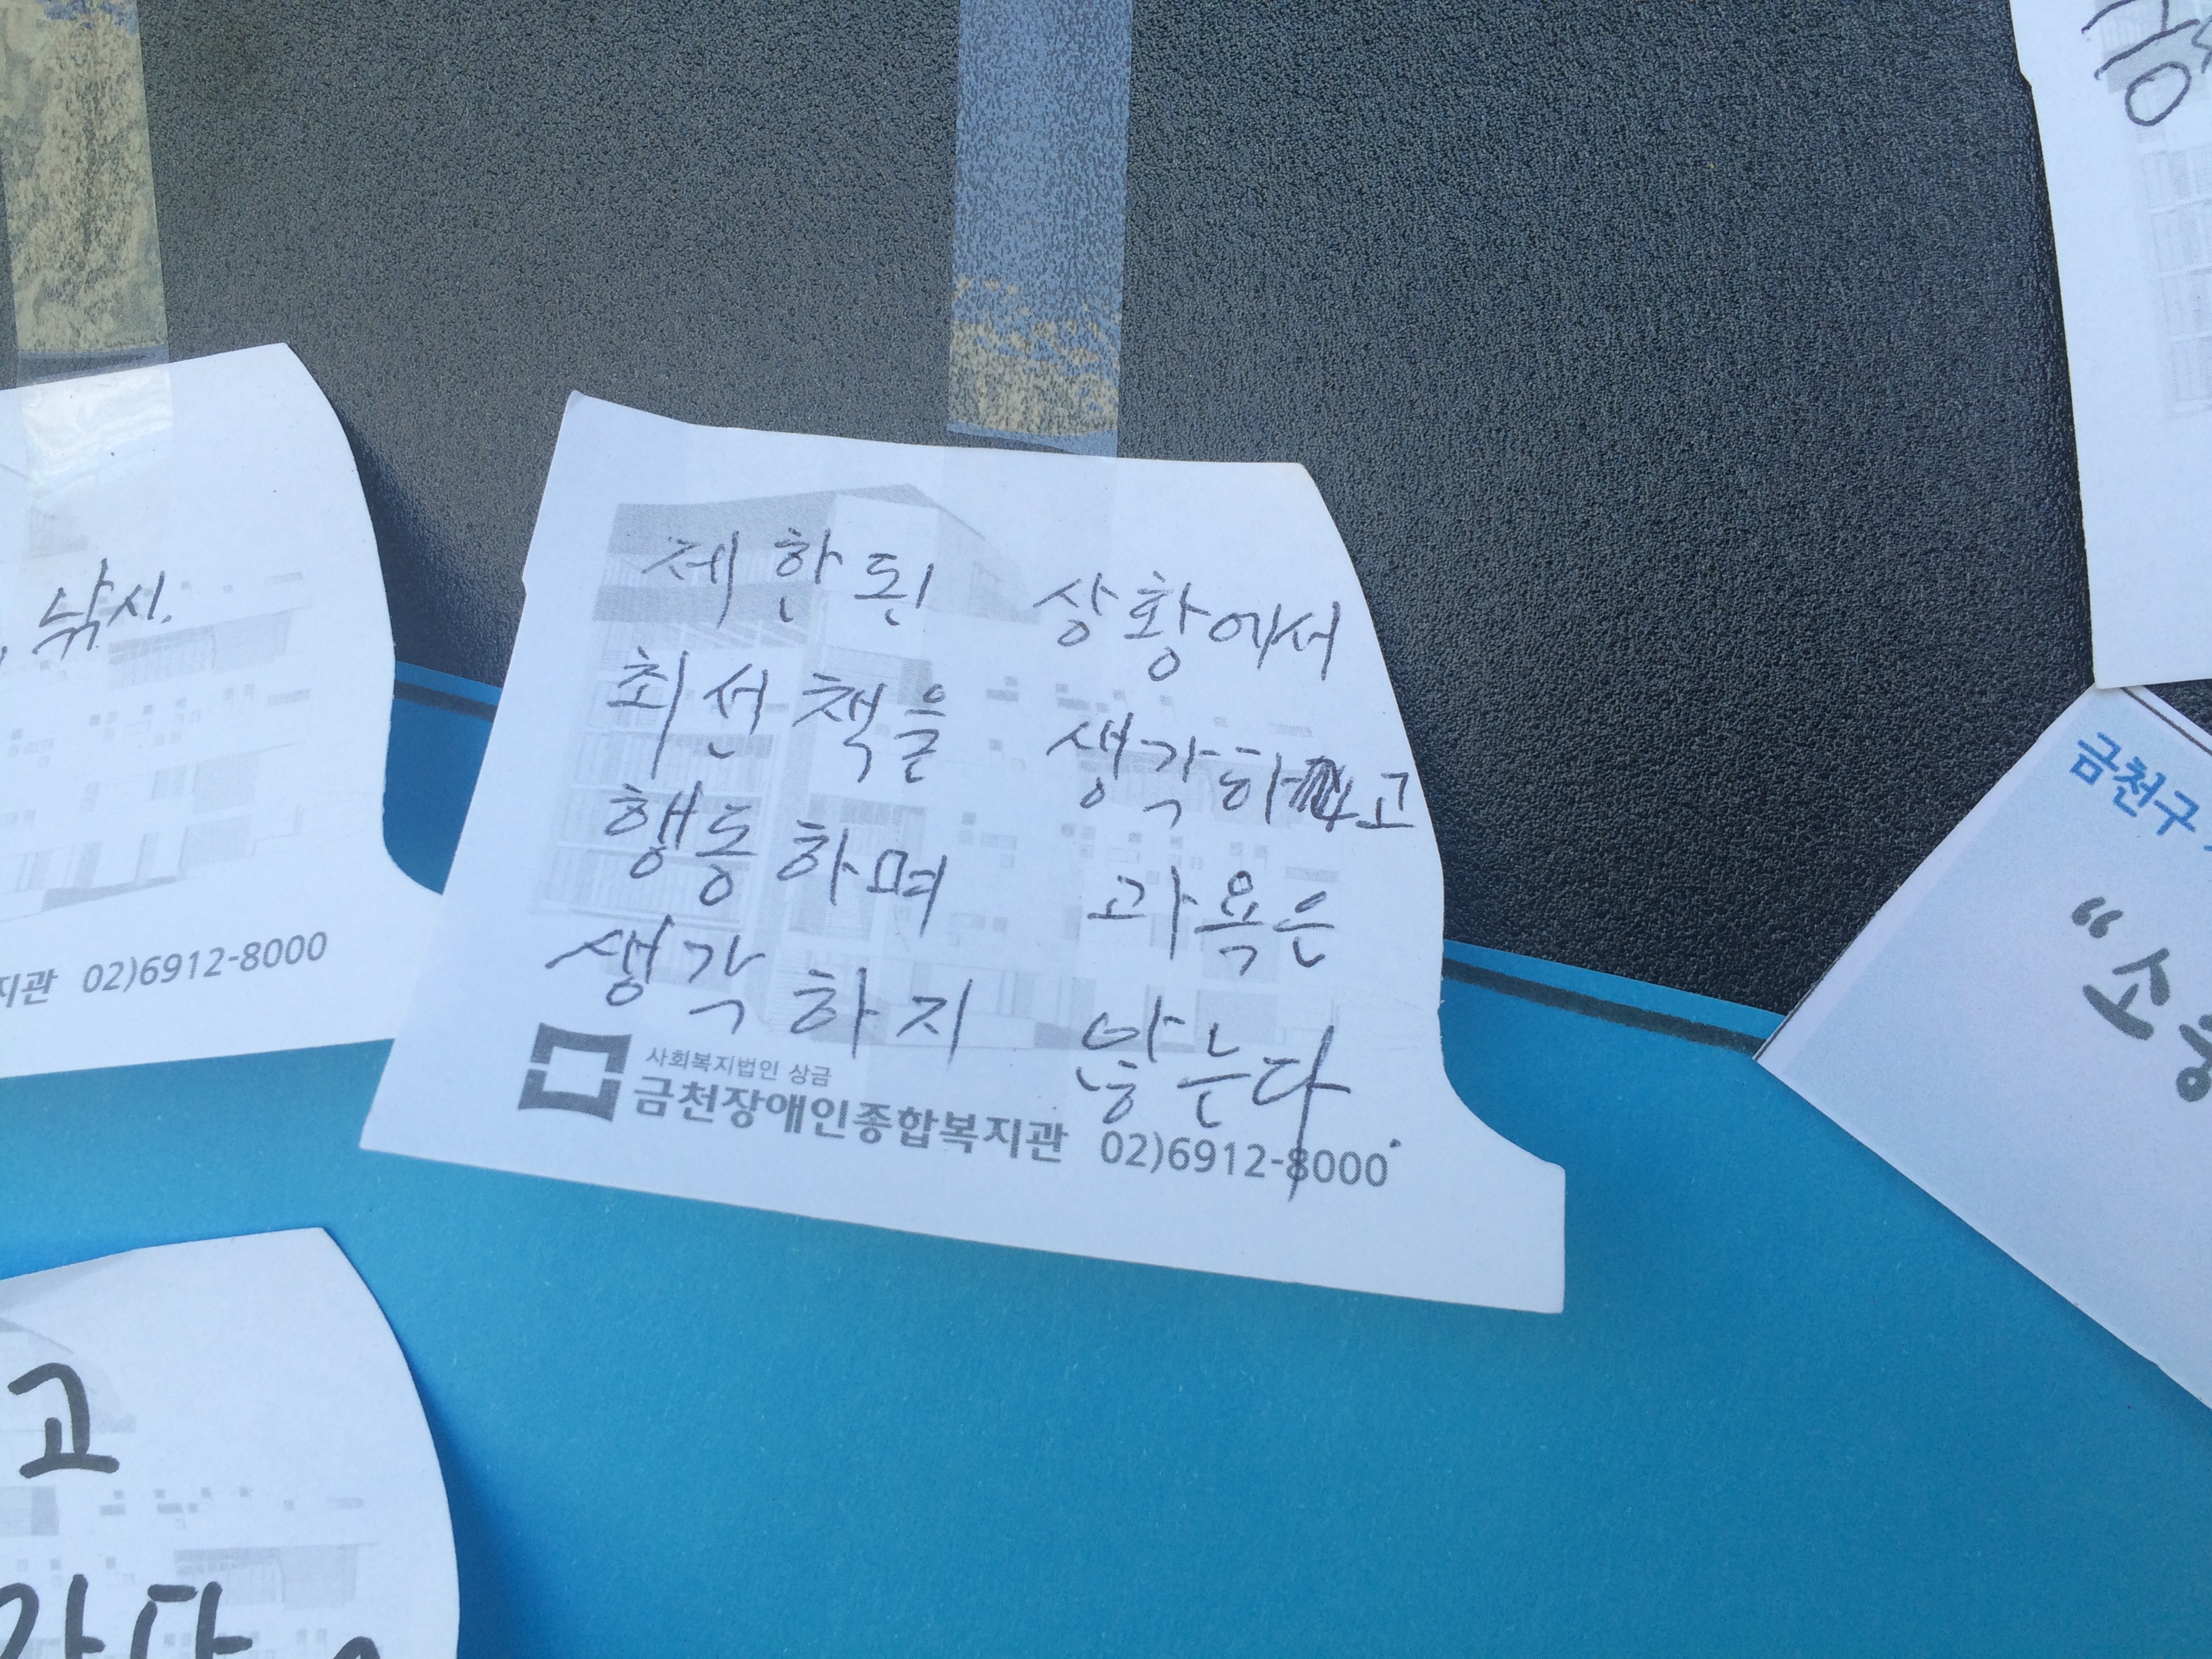 제한된 상황에서
최선책을 생각하고
행동하며 과욕은
생각하지 않는다.
사회복지법인 상금
금천장애인종합복지관 02)6912-8000
낚시.
지관 02)6912-8000
고
금천구
"소